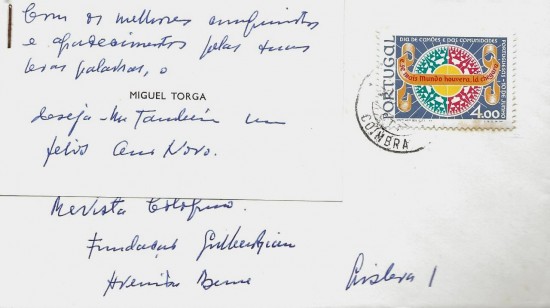 Com os melhores cumprimentos
e agradecimentos pelas suas
boas palavras, o
MIGUEL TORGA
deseja-lhe também um
feliz Ano Novo.
Revista Colóquio
Fundação Gulbenkian
Avenida Berna
Lisboa 1
PORTUGAL
DIA DE CAMÕES E DAS COMUNIDADES
E se mais Mundo houvera, lá chegara
4.00
COIMBRA